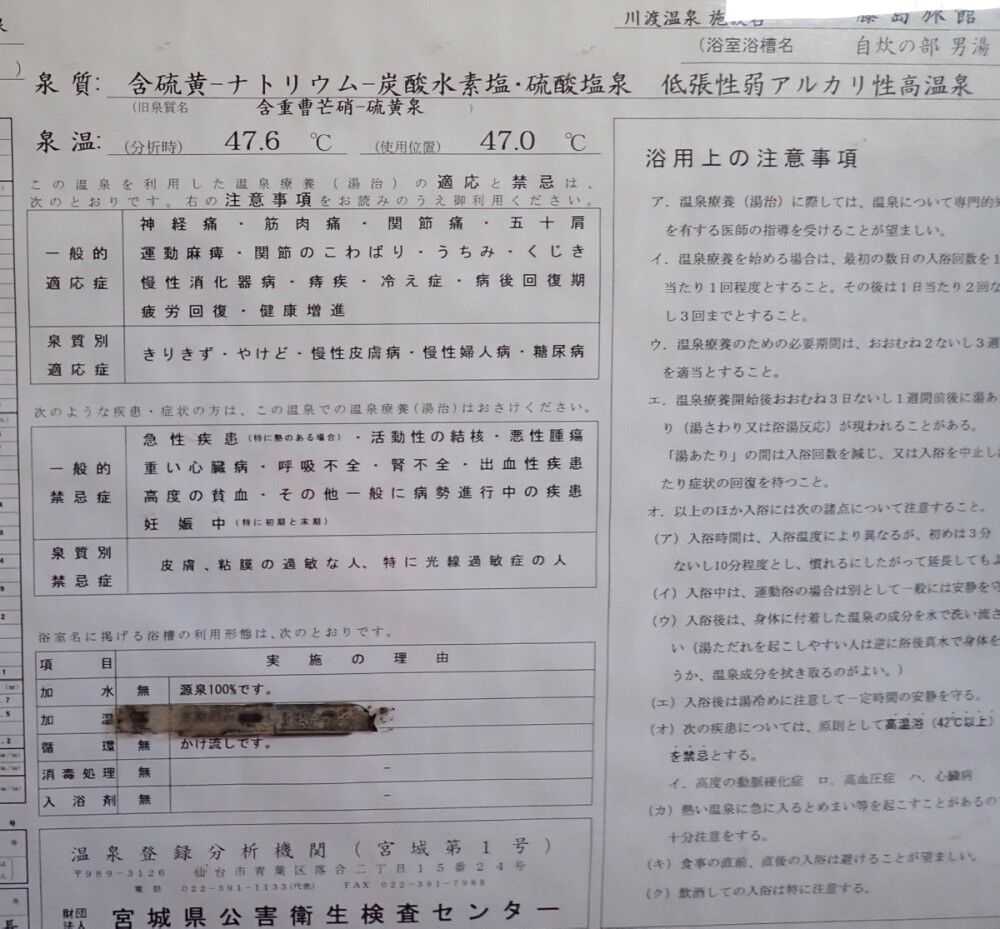 川渡温泉
(浴室浴槽名 自炊の部 男湯
泉質: 含硫黄-ナトリウム-炭酸水素塩・硫酸塩泉 低張性弱アルカリ性高温泉
(旧泉質名 含重曹芒硝-硫黄泉 )
泉温: (分析時) 47.6 ℃ (使用位置) 47.0 ℃
この温泉を利用した温泉療養(湯治)の適応と禁忌は、
次のとおりです。右の注意事項をお読みのうえ御利用ください。
一般的適応症
神経痛・筋肉痛・関節痛・五十肩
運動麻痺・関節のこわばり・うちみ・くじき
慢性消化器病・痔疾・冷え症・病後回復期
疲労回復・健康増進
泉質別適応症
きりきず・やけど・慢性皮膚病・慢性婦人病・糖尿病
次のような疾患・症状の方は、この温泉での温泉療養(湯治)はおさけください。
一般的禁忌症
急性疾患(特に熱のある場合)・活動性の結核・悪性腫瘍
重い心臓病・呼吸不全・腎不全・出血性疾患
高度の貧血・その他一般に病勢進行中の疾患
妊娠中(特に初期と末期)
泉質別禁忌症
皮膚、粘膜の過敏な人、特に光線過敏症の人
浴室名に掲げる浴槽の利用形態は、次のとおりです。
項目 実施の理由
加水 無 源泉100%です。
加温
循環 無 かけ流しです。
消毒処理 無 −
入浴剤 無 −
温泉登録分析機関(宮城第1号)
〒989-3126 仙台市青葉区落合二丁目15番24号
電話 022-391-1133(代表) FAX 022-391-7988
財団法人 宮城県公害衛生検査センター
浴用上の注意事項
ア．温泉療養(湯治)に際しては、温泉について専門的
を有する医師の指導を受けることが望ましい。
イ．温泉療養を始める場合は、最初の数日の入浴回数を1
当たり1回程度とすること。その後は1日当たり2回な
し3回までとすること。
ウ．温泉療養のための必要期間は、おおむね2ないし3週
を適当とすること。
エ．温泉療養開始後おおむね3日ないし1週間前後に湯あ
り(湯さわり又は浴湯反応)が現われることがある。
「湯あたり」の間は入浴回数を減じ、又は入浴を中止し
たり症状の回復を待つこと。
オ．以上のほか入浴には次の諸点について注意すること。
(ア)入浴時間は、入浴温度により異なるが、初めは3分
ないし10分程度とし、慣れるにしたがって延長してもよ
(イ)入浴中は、運動浴の場合は別として一般には安静を守
(ウ)入浴後は、身体に付着した温泉の成分を水で洗い流さ
い(湯ただれを起こしやすい人は逆に浴後真水で身体を
うか、温泉成分を拭き取るのがよい。)
(エ)入浴後は湯冷めに注意して一定時間の安静を守る。
(オ)次の疾患については、原則として高温浴(42℃以上)
を禁忌とする。
イ．高度の動脈硬化症 ロ．高血圧症 ハ．心臓病
(カ)熱い温泉に急に入るとめまい等を起こすことがあるの
十分注意をする。
(キ)食事の直前、直後の入浴は避けることが望ましい。
(ク)飲酒しての入浴は特に注意する。